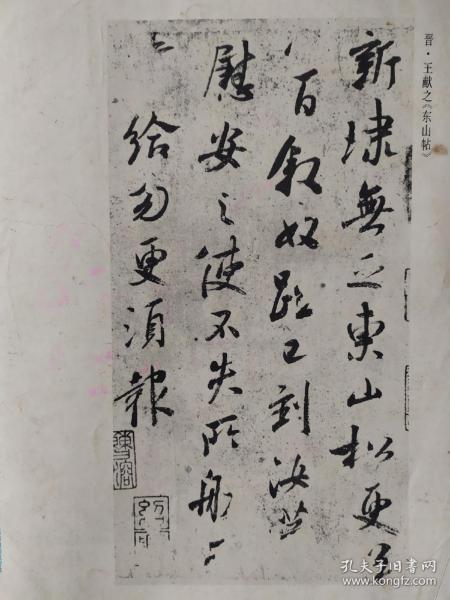 晉·王献之《东山帖》
新埭無乏東山松更送
百敘奴已到汝等
慰安之使不失所船
給勿更須報
孔夫子旧书网
www.kongfz.com